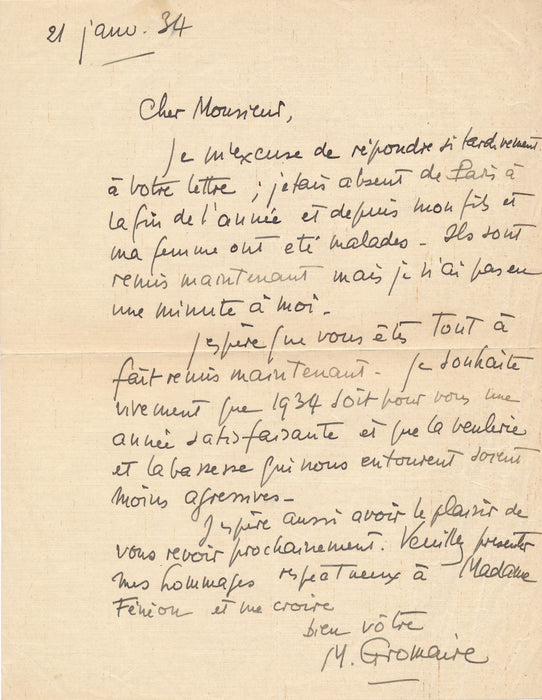 21 janv. 34
Cher Monsieur,
Je m'excuse de répondre si tardivement
à votre lettre ; j'étais absent de Paris à
la fin de l'année et depuis mon fils et
ma femme ont été malades - Ils sont
remis maintenant mais je n'ai pas eu
une minute à moi -
J'espère que vous êtes tout à
fait remis maintenant - Je souhaite
vivement que 1934 soit pour vous une
année satisfaisante et que la veulerie
et la bassesse qui nous entourent soient
moins agressives -
J'espère aussi avoir le plaisir de
vous revoir prochainement. Veuillez présenter
mes hommages respectueux à Madame
Fénéon et me croire
bien vôtre
M. Gromaire